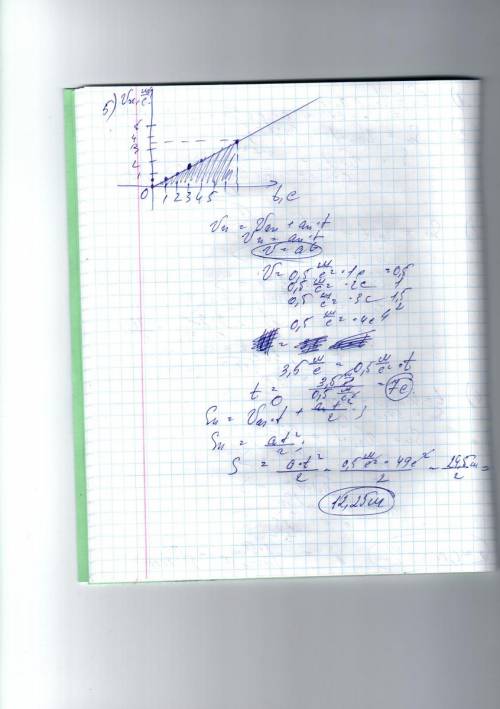 5) Vx, м/с
5
4
3
2
1
0 1 2 3 4 5 t, c
Vx = V₀x + aₓ·t
Vx = aₓ·t
V = at
V = 0,5 м/с² · 1c = 0,5
0,5 м/с² · 2c 1
0,5 м/с² · 3c 1,5
0,5 м/с² · 4c 2
3,5 м/с = 0,5 м/с² · t
t = 3,5 м/с / 0,5 м/с² = 7c
Sx = V₀x·t + aₓt²/2;
Sx = at²/2;
S = a·t²/2 = 0,5 м/с² · 49c²/2 = 24,5м/2 =
12,25м